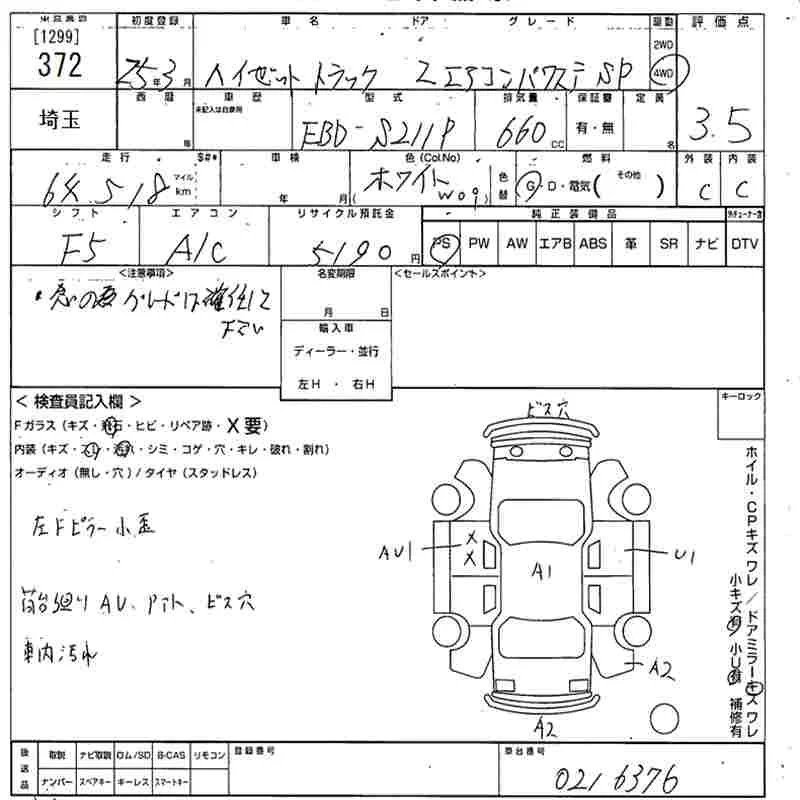 [1299]
372
埼玉
初度登録 車名 ドア グレード 駆動 評価点
25年3月 ハイゼットトラック 2 エアコンパワステSP 2WD 4WD 3.5
西暦 車歴 型式 排気量 保証書 定員
未記入は自家用
年 EBD-S211P 660 CC 有・無 名
走行 $#* 車検 色(Col.No) 燃料 外装 内装
64,518 マイル km 年 月 ホワイト (W09) 色替 G・D・電気( その他 ) C C
シフト エアコン リサイクル預託金 純正装備品
F5 A/C 5190円 PS PW AW エアB ABS 革 SR ナビ DTV
<注意事項> 名変期限 <セールスポイント>
グレードは確認して
下さい
月 日
輸入車
ディーラー・並行
左H ・ 右H
< 検査員記入欄 > キーロック
Fガラス(キズ・飛石・ヒビ・リペア跡・X要)
内装(キズ・スレ・汚れ・シミ・コゲ・穴・キレ・破れ・割れ)
オーディオ(無し・穴)/タイヤ(スタッドレス)
ビス穴
左Fピラー小歪
AU1 X X A1 U1
荷台廻りAU、アト、ビス穴
車内汚れ
A2
A2
ホイル・CPキズ ワレ/ドアミラーキズ ワレ
小キズ有 小U有 補修有
後送品 取説 ナビ取説 ロム/SD B-CAS リモコン 登録番号 車台番号
ナンバー スペアキー キーレス スマートキー 0216376